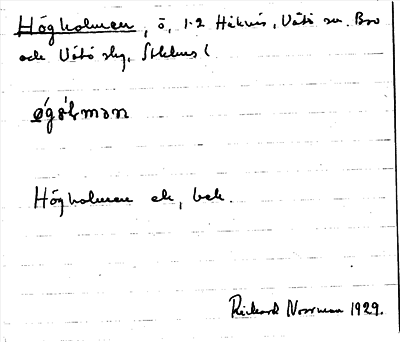 Högholmen, ö, 1-2 Håknäs, Vätö sn. Bro
och Vätö skg, Sthlms l
ǿgǿɫmən
Högholmen ek, bek.
Rickard Norrman 1929.